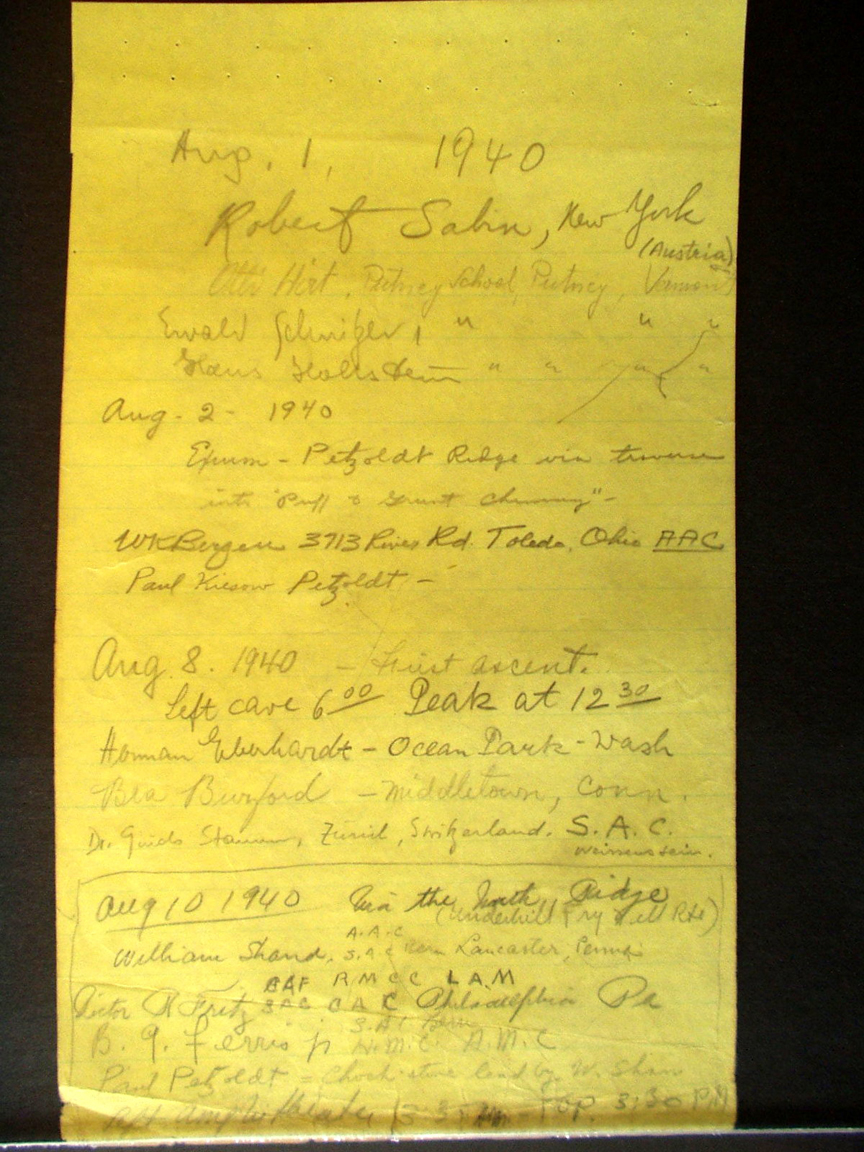 Aug. 1, 1940
Robert Sabin, New York
(Austria)
Otti Hirt, Putney School, Putney, Vermont
Ewald " " "
Hans " " " "
Aug. 2 - 1940
Exum - Petzoldt Ridge via traverse
into "Puff & Grunt Chimney" -
WKBergen 3713 River Rd. Toledo, Ohio AAC
Paul Kiesow Petzoldt -
Aug. 8. 1940 - First ascent.
Left cave 6 00 Peak at 12 30
Herman Eberhardt - Ocean Park - Wash
Bea Burford - Middletown, Conn.
Dr. Guido Zürich, Switzerland. S.A.C.
Weissenstein.
Aug 10 1940 Via the North Ridge
(Underhill Fry
A.A.C
William Shand. S.A.C Bern Lancaster, Penna
BAF RMCC LAM
Victor R Fritz SAC CAC Philadelphia Pa
S.A.C Bern
B. G. Ferris jr H.M.C. A.M.C
Paul Petzoldt = Chock stone lead by W. Shan
Top. 3:30 PM